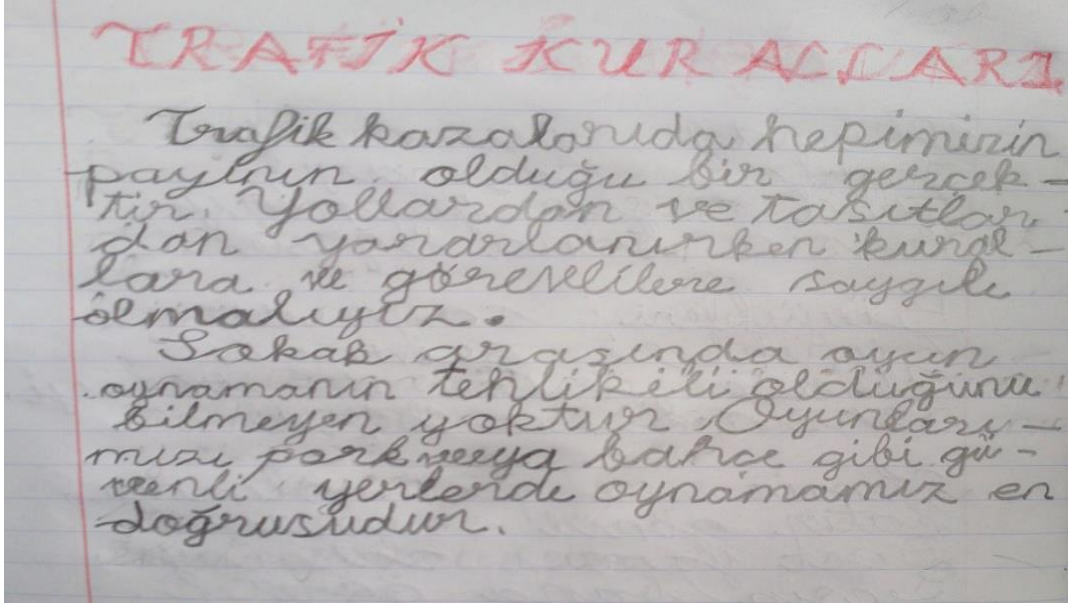 TRAFİK KURALLARI
Trafik kazalarıda hepimizin
payının olduğu bir gerçek-
tir. Yollardan ve taşıtlar-
dan yararlanırken kural-
lara ve görevlilere saygılı
olmalıyız.
Sokak arasında oyun
oynamanın tehlikeili olduğunu
bilmeyen yoktur. Oyunları-
mızı park veya bahçe gibi gü-
venli yerlerde oynamamız en
doğrusudur.